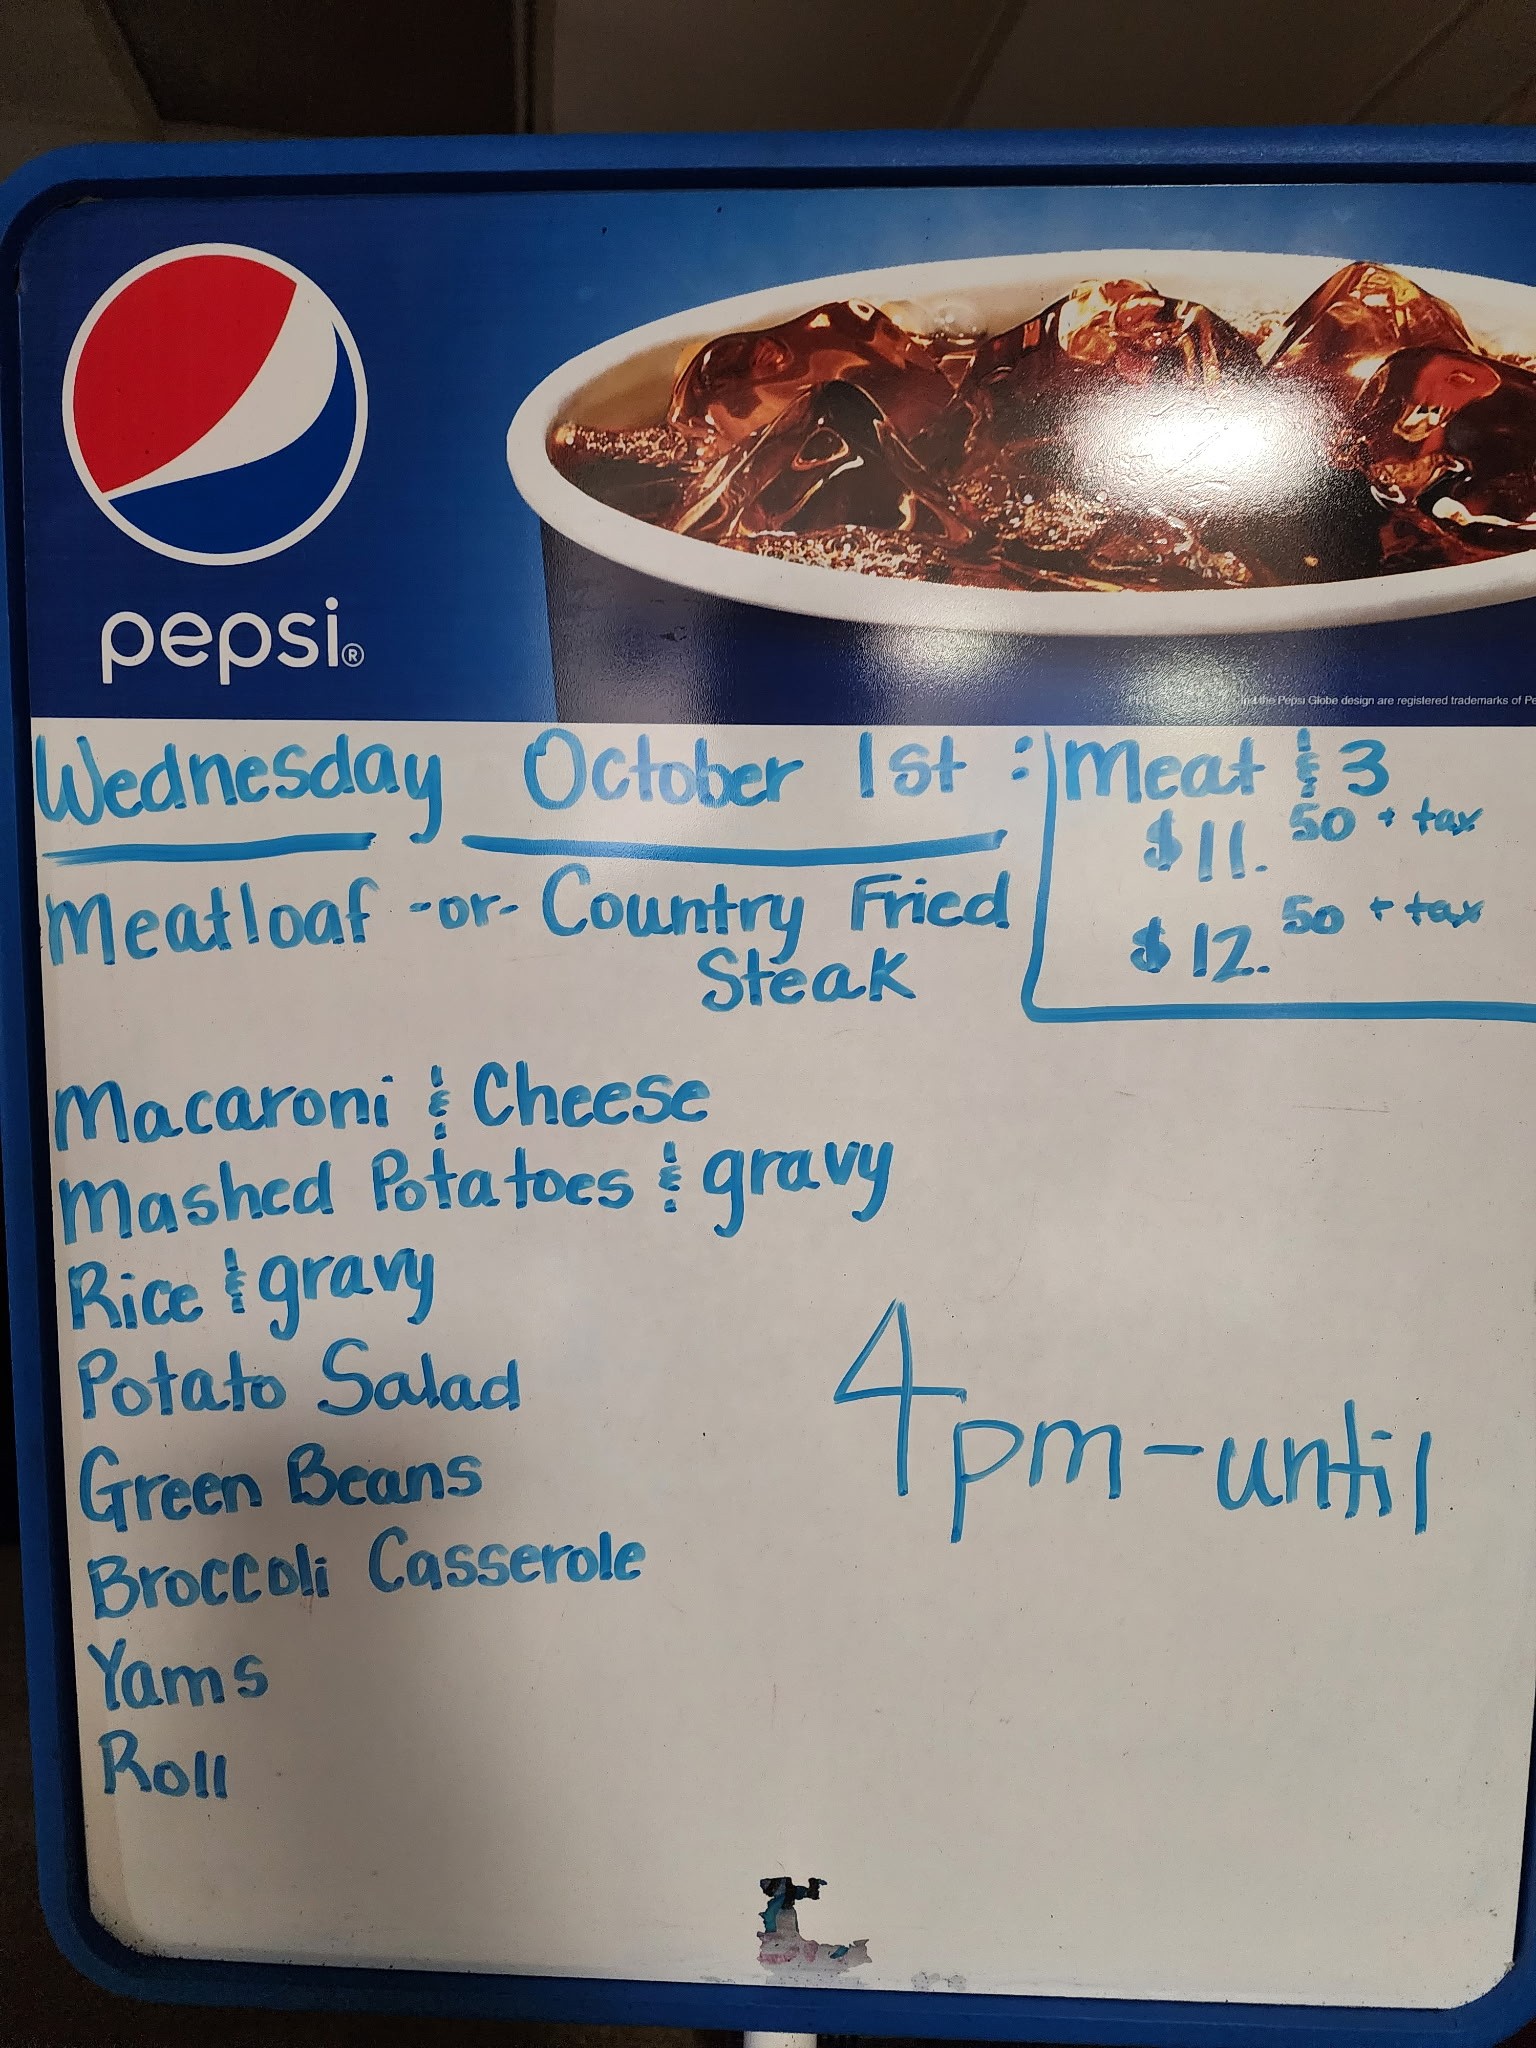 pepsi®
the Pepsi Globe design are registered trademarks of Pe
Wednesday October 1st :
Meatloaf -or- Country Fried
Steak
Meat & 3
$11.50 + tax
$12.50 + tax
Macaroni & Cheese
Mashed Potatoes & gravy
Rice & gravy
Potato Salad
Green Beans
Broccoli Casserole
Yams
Roll
4pm-until